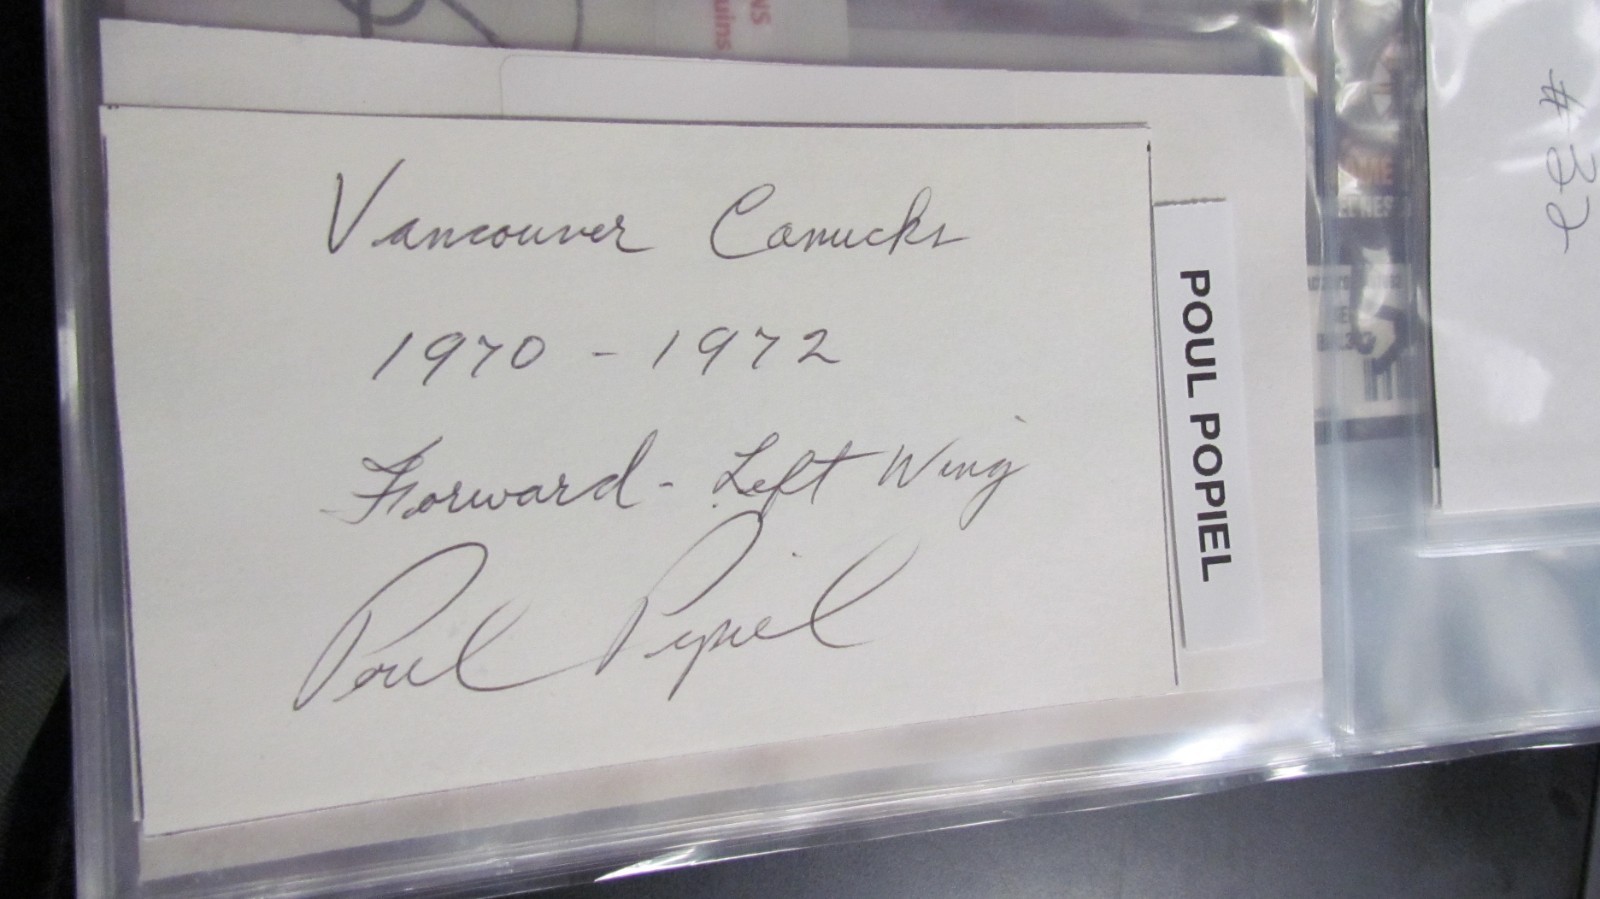 NS
uins
Vancouver Canucks
1970 - 1972
Forward - Left Wing
Poul Popiel
POUL POPIEL
#32